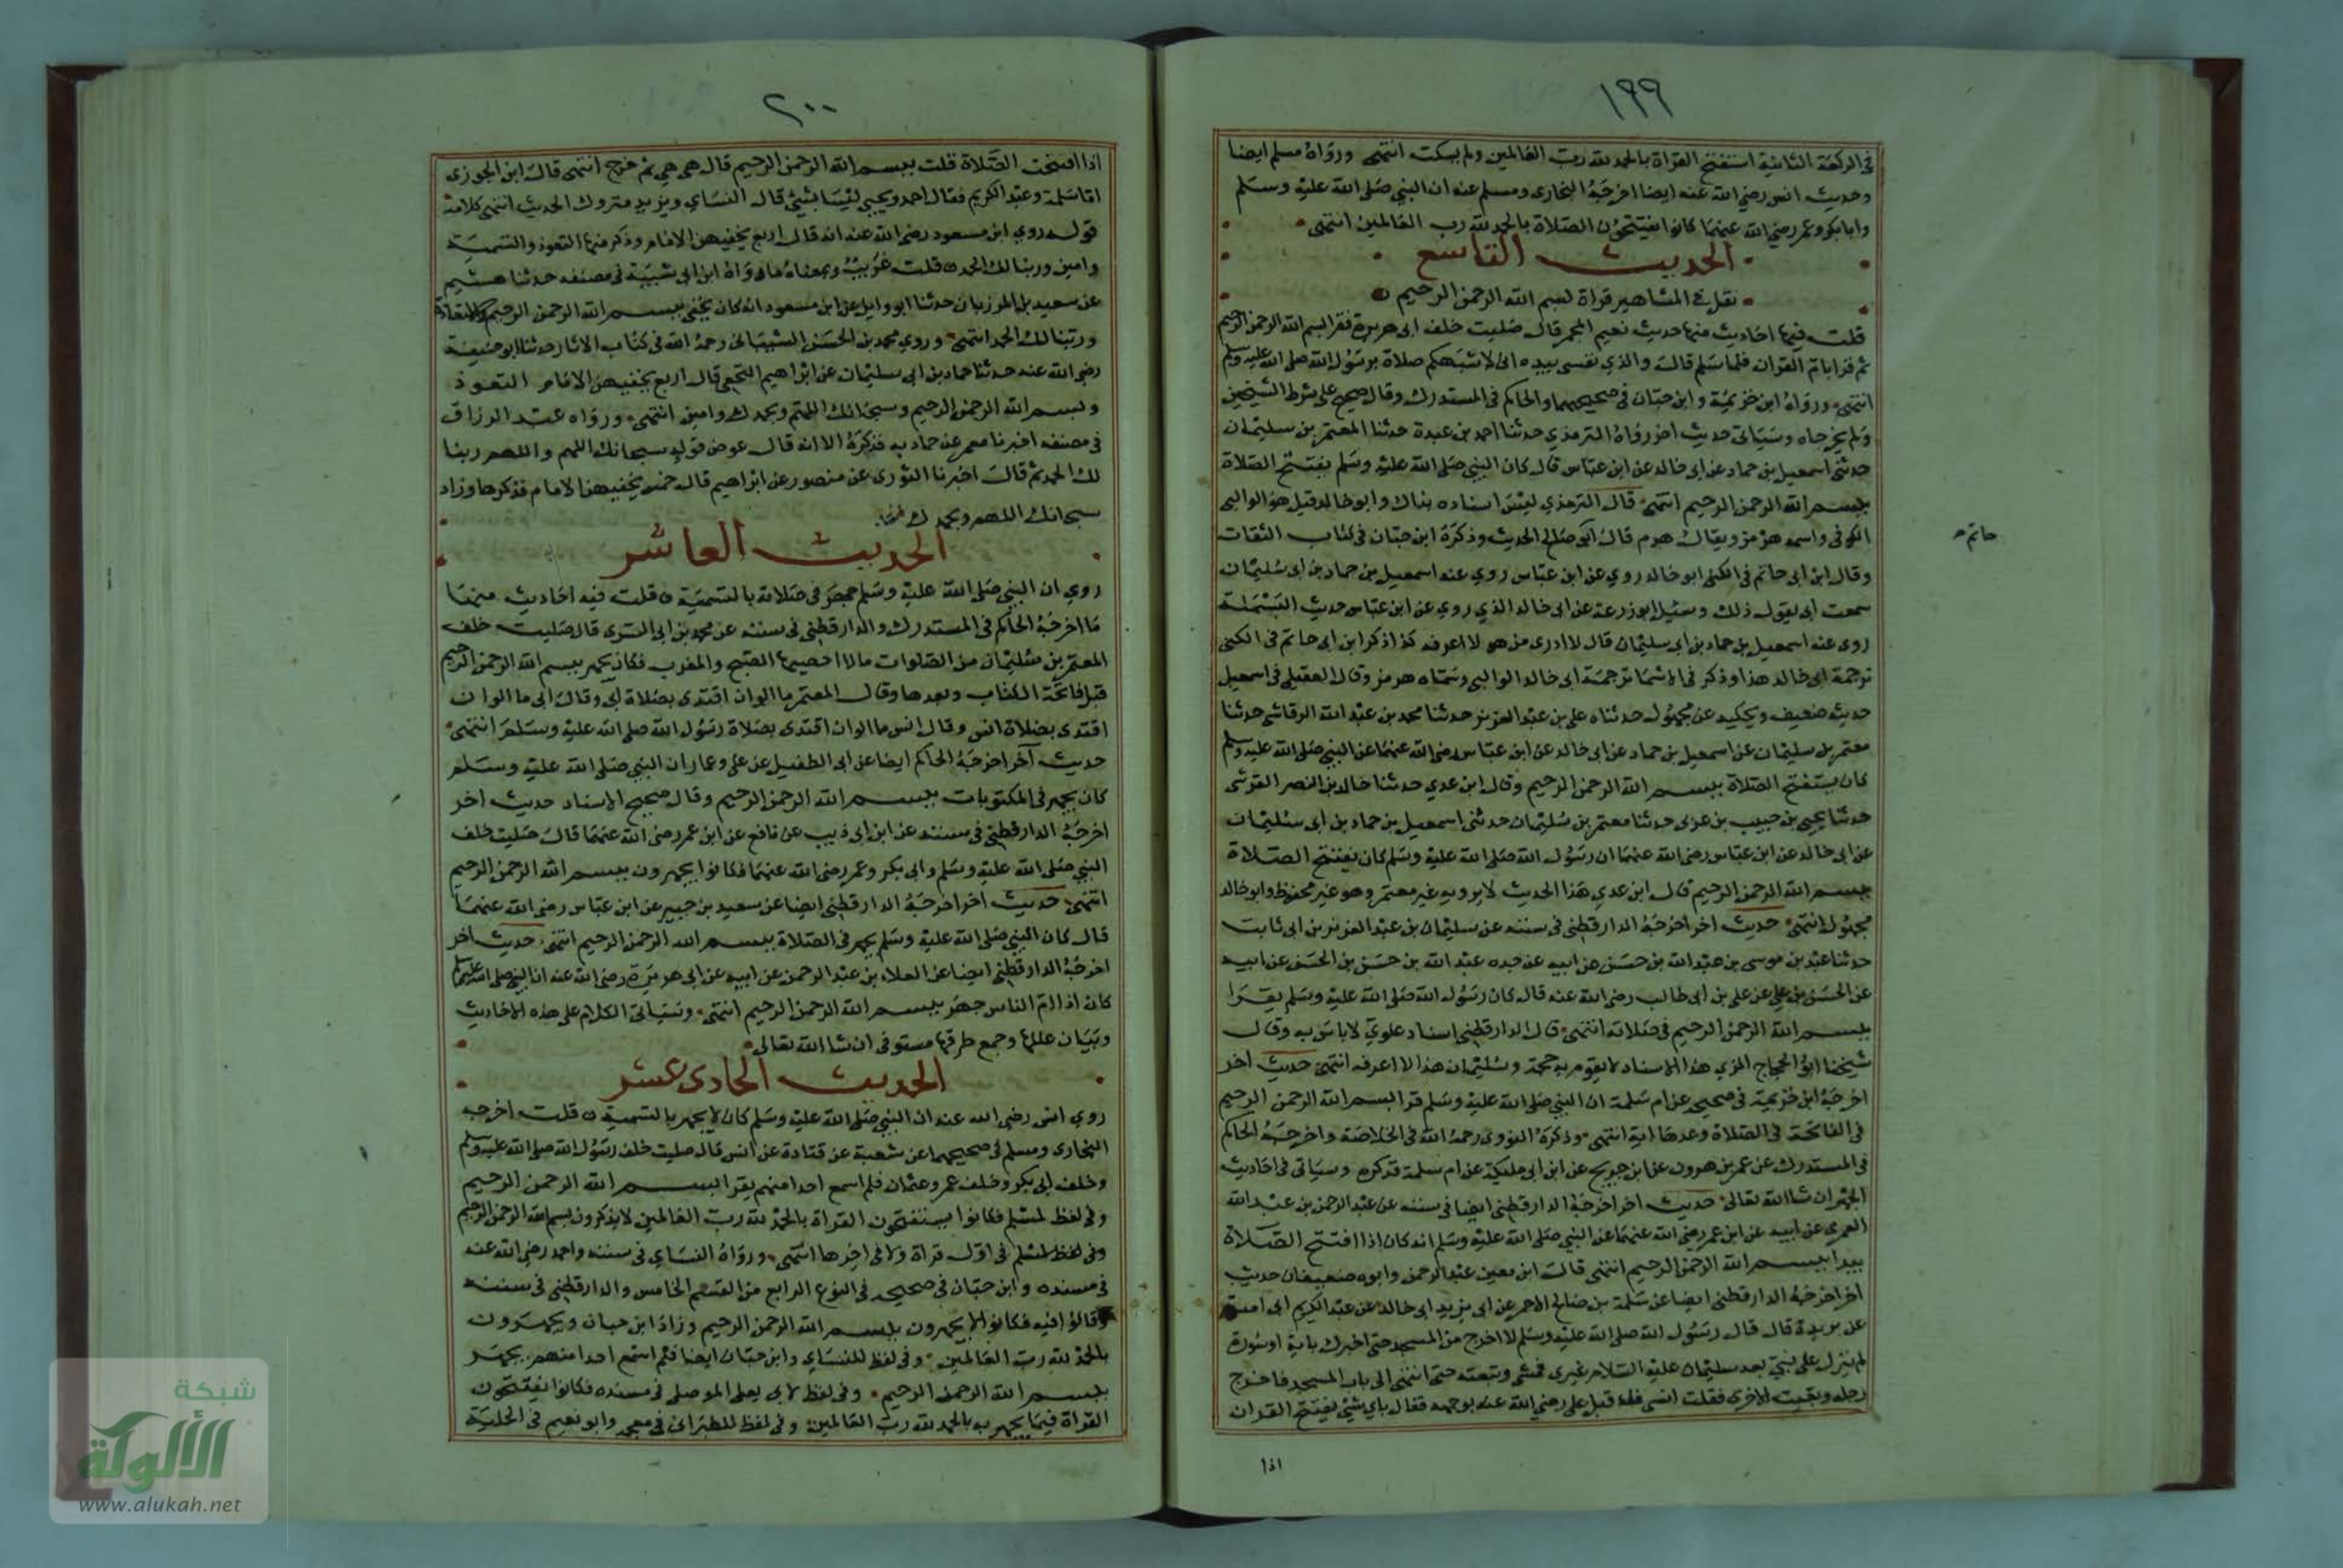 ١٩٩
في الركعة الثانية استفتح القراة بالحمد لله رب العالمين ولم يسكت انتهى ورواه مسلم ايضا
وحديث انس رضي الله عنه ايضا اخرجه البخاري ومسلم عنه ان النبي صلى الله عليه وسلم
وابابكر وعمر رضي الله عنهما كانوا يفتتحون الصلاة بالحمد لله رب العالمين انتهى
الحديث التاسع
نقل في المشاهير قراة بسم الله الرحمن الرحيم
قلت فيها احاديث منها حديث نعيم المجمر قال صليت خلف ابي هريرة فقرا بسم الله الرحمن الرحيم
ثم قرا بام القران فلما سلم قال والذي نفسي بيده اني لاشبهكم صلاة برسول الله صلى الله عليه وسلم
انتهى ورواه ابن خزيمة وابن حبان في صحيحهما والحاكم في المستدرك وقال صحيح على شرط الشيخين
ولم يخرجاه وسياتي حديث اخر رواه الترمذي حدثنا احمد بن عبدة حدثنا المعتمر بن سليمان
حدثني اسمعيل بن حماد عن ابي خالد عن ابن عباس قال كان النبي صلى الله عليه وسلم يفتتح الصلاة
ببسم الله الرحمن الرحيم انتهى قال الترمذي ليس اسناده بذاك وابو خالد قيل هو الوالبي
الكوفي واسمه هرمز ويقال هرم قال ابو صالح الحديث وذكره ابن حبان في كتاب الثقات
حاتم
وقال ابن ابي حاتم في الكنى ابو خالد روي عن ابن عباس روي عنه اسمعيل بن حماد بن ابي سليمان
سمعت ابي يقول ذلك وسئل ابو زرعة عن ابي خالد الذي روي عن ابن عباس حديث البسملة
روى عنه اسمعيل بن حماد بن ابي سليمان قال لا ادرى من هو لا اعرفه كذا ذكر ابن ابي حاتم في الكنى
ترجمة ابي خالد هذا وذكر في الاسما ترجمة ابي خالد الوالبي وسماه هرمز وقال العقيلي في اسمعيل
حديثه ضعيف ويحكيه عن مجهول حدثناه علي بن عبد العزيز حدثنا محمد بن عبد الله الرقاشي حدثنا
معتمر بن سليمان عن اسمعيل بن حماد عن ابي خالد عن ابن عباس رضي الله عنهما عن النبي صلى الله عليه وسلم
كان يستفتح الصلاة ببسم الله الرحمن الرحيم وقال ابن عدي حدثنا خالد بن النضر القرشي
حدثنا يحيى بن حبيب بن عربى حدثنا معتمر بن سليمان حدثني اسمعيل بن حماد بن ابي سليمان
عن ابي خالد عن ابن عباس رضي الله عنهما ان رسول الله صلى الله عليه وسلم كان يفتتح الصلاة
ببسم الله الرحمن الرحيم قال ابن عدي هذا الحديث لا يرويه غير معتمر وهو غير محفوظ وابو خالد
مجهول انتهى حديث اخر اخرجه الدارقطني في سننه عن سليمان بن عبد العزيز بن ابي ثابت
حدثنا عبد بن موسى بن عبد الله بن حسن عن ابيه عن جده عبد الله بن حسن بن الحسن عن ابيه
عن الحسن بن علي عن علي بن ابي طالب رضي الله عنه قال كان رسول الله صلى الله عليه وسلم يقرا
ببسم الله الرحمن الرحيم في صلاته انتهى قال الدارقطني اسناد علوي لا باس به وقال
شيخنا ابو الحجاج المزي هذا الاسناد لا يقوم به حجة وسليمان هذا لا اعرفه انتهى حديث اخر
اخرجه ابن خزيمة في صحيحه عن ام سلمة ان النبي صلى الله عليه وسلم قرا بسم الله الرحمن الرحيم
في الفاتحة في الصلاة وعدها اية انتهى وذكره النووي رحمه الله في الخلاصة واخرجه الحاكم
في المستدرك عن عمر بن هرون عن ابن جريج عن ابن ابي مليكة عن ام سلمة فذكره وسياتي في احاديث
الجهر ان شا الله تعالى حديث اخر اخرجه الدارقطني ايضا في سننه عن عبد الرحمن بن عبد الله
العمري عن ابيه عن ابن عمر رضي الله عنهما عن النبي صلى الله عليه وسلم انه كان اذا افتتح الصلاة
يبدا ببسم الله الرحمن الرحيم انتهى قال ابن معين عبد الرحمن وابوه ضعيفان حديث
اخر اخرجه الدارقطني ايضا عن سلمة بن صالح الاحمر عن ابي يزيد ابي خالد عن عبد الكريم ابي امية
عن بريدة قال قال رسول الله صلى الله عليه وسلم لا اخرج من المسجد حتى اخبرك باية او سورة
لم ينزل على نبي بعد سليمان عليه السلام غيري فمشى وتبعته حتى انتهى الى باب المسجد فاخرج
رجله وبقيت الاخرى فقلت انسى فاقبل علي بوجهه فقال باي شئ يفتتح القران
اذا
٢٠٠
اذا افتتحت الصلاة قلت ببسم الله الرحمن الرحيم قال هي هي ثم خرج انتهى قال ابن الجوزي
اما سلمة وعبد الكريم فقال احمد ويحيى ليسا بشئ قال النساي ويزيد متروك الحديث انتهى كلامه
قوله روي ابن مسعود رضي الله عنه انه قال اربع يخفيهن الامام وذكر منها التعوذ والتسمية
وامين وربنا لك الحمد قلت غريب وبمعناه ما رواه ابن ابي شيبة في مصنفه حدثنا هشيم
عن سعيد بن المرزبان حدثنا ابو وايل عن ابن مسعود انه كان يخفي ببسم الله الرحمن الرحيم والاستعاذة
وربنا لك الحمد انتهى وروي محمد بن الحسن الشيباني رحمه الله في كتاب الاثار حدثنا ابو حنيفة
رضي الله عنه حدثنا حماد بن ابي سليمان عن ابراهيم النخعي قال اربع يخفيهن الامام التعوذ
وبسم الله الرحمن الرحيم وسبحانك اللهم وبحمدك وامين انتهى ورواه عبد الرزاق
في مصنفه اخبرنا معمر عن حماد به فذكره الا انه قال عوض قوله سبحانك اللهم واللهم ربنا
لك الحمد ثم قال اخبرنا الثوري عن منصور عن ابراهيم قال خمس يخفيهن الامام فذكرها وزاد
سبحانك اللهم وبحمدك
الحديث العاشر
روي ان النبي صلى الله عليه وسلم جهر في صلاته بالتسمية قلت فيه احاديث منها
ما اخرجه الحاكم في المستدرك والدارقطني في سننه عن محمد بن ابي السري قال صليت خلف
المعتمر بن سليمان من الصلوات ما لا احصيها الصبح والمغرب فكان يجهر ببسم الله الرحمن الرحيم
قبل فاتحة الكتاب وبعدها وقال المعتمر ما الوان اقتدى بصلاة ابي وقال ابي ما الوان
اقتدى بصلاة انس وقال انس ما الوان اقتدى بصلاة رسول الله صلى الله عليه وسلم انتهى
حديث آخر اخرجه الحاكم ايضا عن ابي الطفيل عن علي وعمار ان النبي صلى الله عليه وسلم
كان يجهر في المكتوبات ببسم الله الرحمن الرحيم وقال صحيح الاسناد حديث اخر
اخرجه الدارقطني في سننه عن ابن ابي ذيب عن نافع عن ابن عمر رضي الله عنهما قال صليت خلف
النبي صلى الله عليه وسلم وابي بكر وعمر رضي الله عنهما فكانوا يجهرون ببسم الله الرحمن الرحيم
انتهى حديث اخر اخرجه الدارقطني ايضا عن سعيد بن جبير عن ابن عباس رضي الله عنهما
قال كان النبي صلى الله عليه وسلم يجهر في الصلاة ببسم الله الرحمن الرحيم انتهى حديث اخر
اخرجه الدارقطني ايضا عن العلاء بن عبد الرحمن عن ابيه عن ابي هريرة رضي الله عنه ان النبي صلى الله عليه وسلم
كان اذا ام الناس جهر ببسم الله الرحمن الرحيم انتهى وسياتي الكلام على هذه الاحاديث
وبيان عللها وجمع طرقها مستوفى ان شا الله تعالى
الحديث الحادي عشر
روي انس رضي الله عنه ان النبي صلى الله عليه وسلم كان لا يجهر بالتسمية قلت اخرجه
البخاري ومسلم في صحيحهما عن شعبة عن قتادة عن انس قال صليت خلف رسول الله صلى الله عليه وسلم
وخلف ابي بكر وخلف عمر وعثمان فلم اسمع احدا منهم يقرا بسم الله الرحمن الرحيم
وفي لفظ لمسلم فكانوا يستفتحون القراة بالحمد لله رب العالمين لا يذكرون بسم الله الرحمن الرحيم
وفي لفظ لمسلم في اول قراة ولا في اخرها انتهى ورواه النساي في سننه واحمد رضي الله عنه
في مسنده وابن حبان في صحيحه في النوع الرابع من القسم الخامس والدارقطني في سننه
وقالوا فيه فكانوا لا يجهرون ببسم الله الرحمن الرحيم وزاد ابن حبان ويجهرون
بالحمد لله رب العالمين وفي لفظ للنساي وابن حبان ايضا فلم اسمع احدا منهم يجهر
ببسم الله الرحمن الرحيم وفي لفظ لابي يعلى الموصلي في مسنده فكانوا يفتتحون
القراة فيما يجهر به بالحمد لله رب العالمين وفي لفظ للطبراني في معجمه وابو نعيم في الحلية
شبكة
الألوكة
www.alukah.net